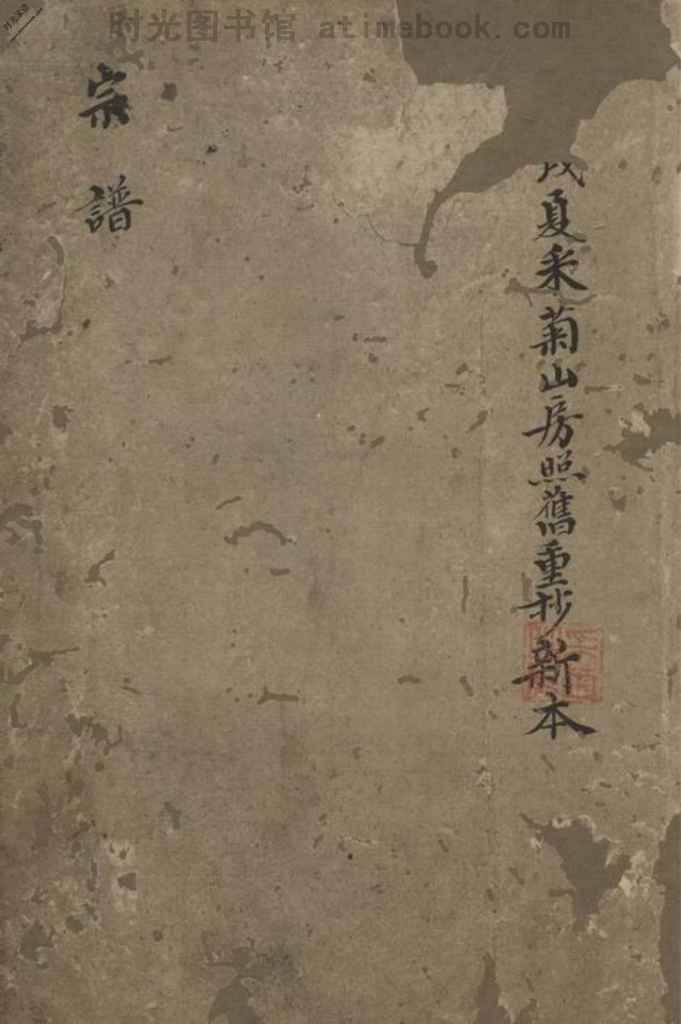 时光图书馆 atimebook.com
夏采菊山房照舊重抄新本
宗譜